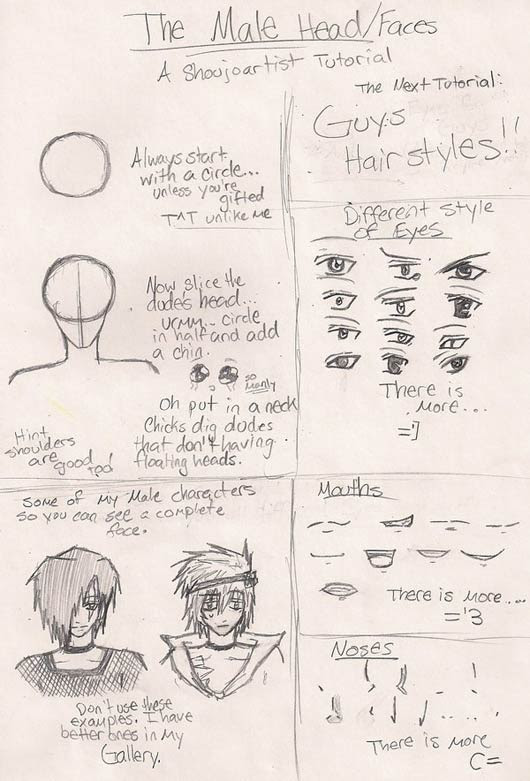 The Male Head/Faces
A Shoujoartist Tutorial
Always start
with a circle...
unless you're
gifted
T^T unlike me
Now slice the
dude's head...
urmm.. circle
in half and add
a chin.
so
manly
Oh put in a neck
Chicks dig dudes
that don't having
floating heads.
Hint
shoulders
are
good too!
Some of my Male characters
so you can see a complete
face.
Don't use these
examples. I have
better ones in my
Gallery.
The Next Tutorial:
Guys
Hairstyles!!
Different Style
of Eyes
There is
more...
=']
Mouths
There is more...
='3
Noses
There is more
C=